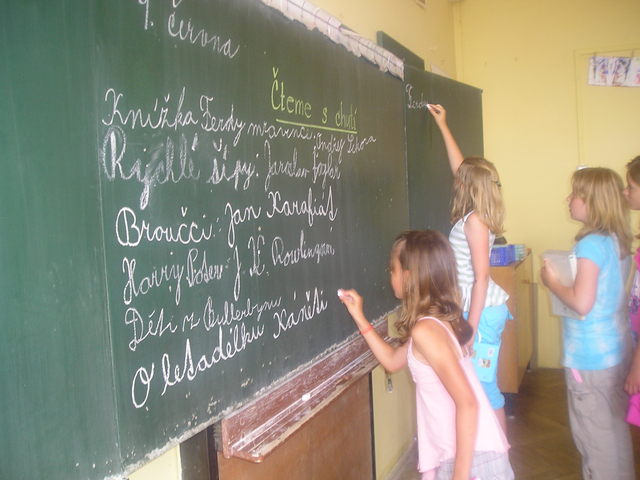 9. června
Čteme s chutí
Knížka Ferdy mravenci: Ondřej Sekora
Rychlé šípy: Jaroslav Foglar
Broučci: Jan Karafiát
Harry Poter: J. K. Rowlingová
Děti z Bullerbynu
O letadélku Káněti
Ferdy